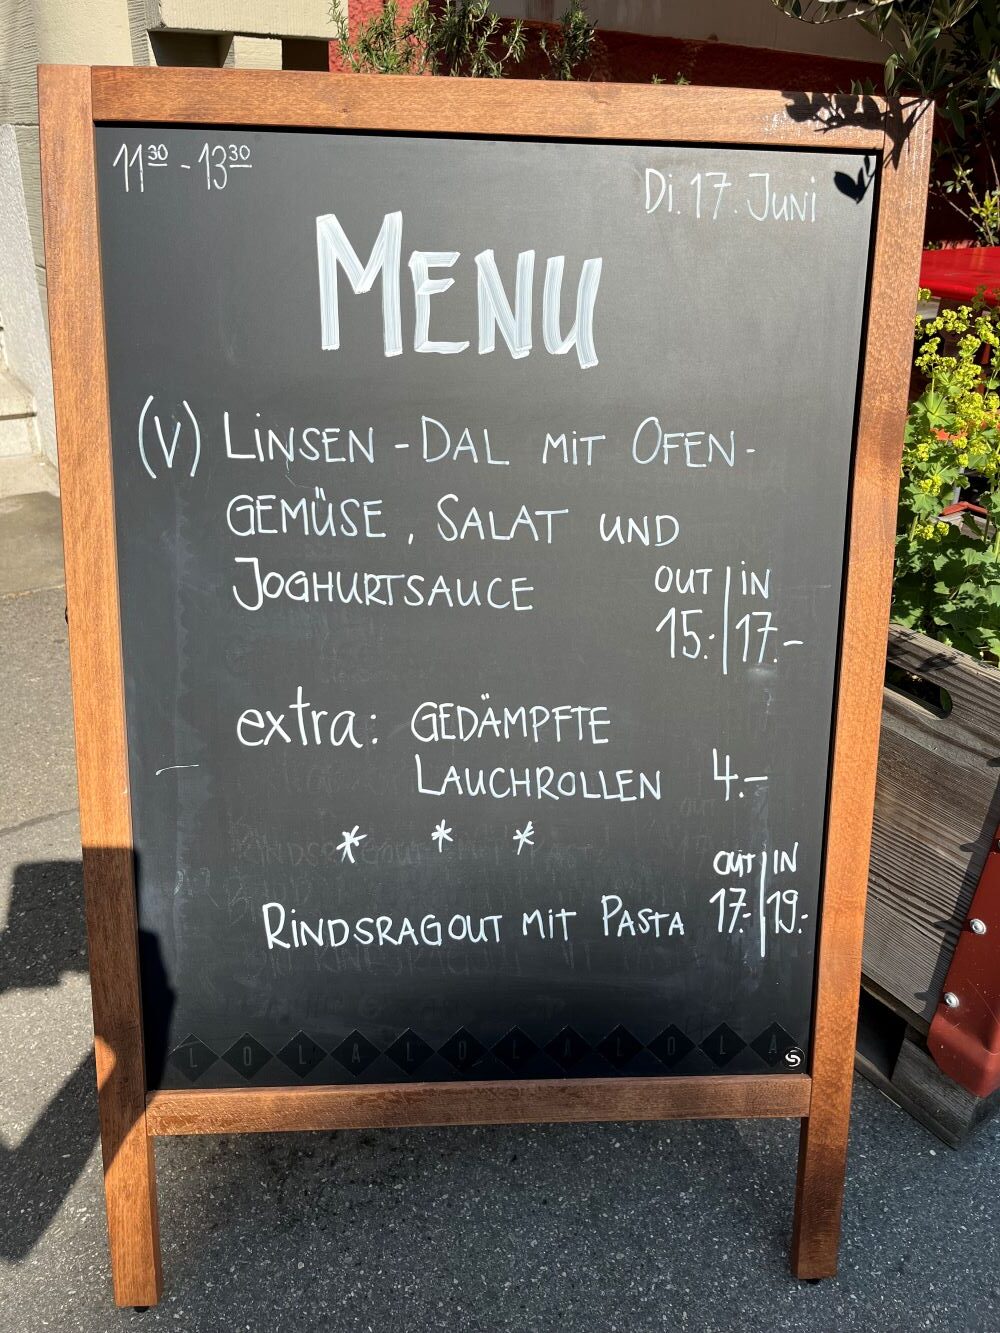 11³⁰ - 13³⁰
Di. 17. Juni
MENU
(V) LINSEN - DAL MIT OFEN-
GEMÜSE, SALAT UND
JOGHURTSAUCE
OUT | IN
15.- | 17.-
extra: GEDÄMPFTE
LAUCHROLLEN 4.-
* * *
OUT | IN
RINDSRAGOUT MIT PASTA 17.- | 19.-
LOLALOLALOLA